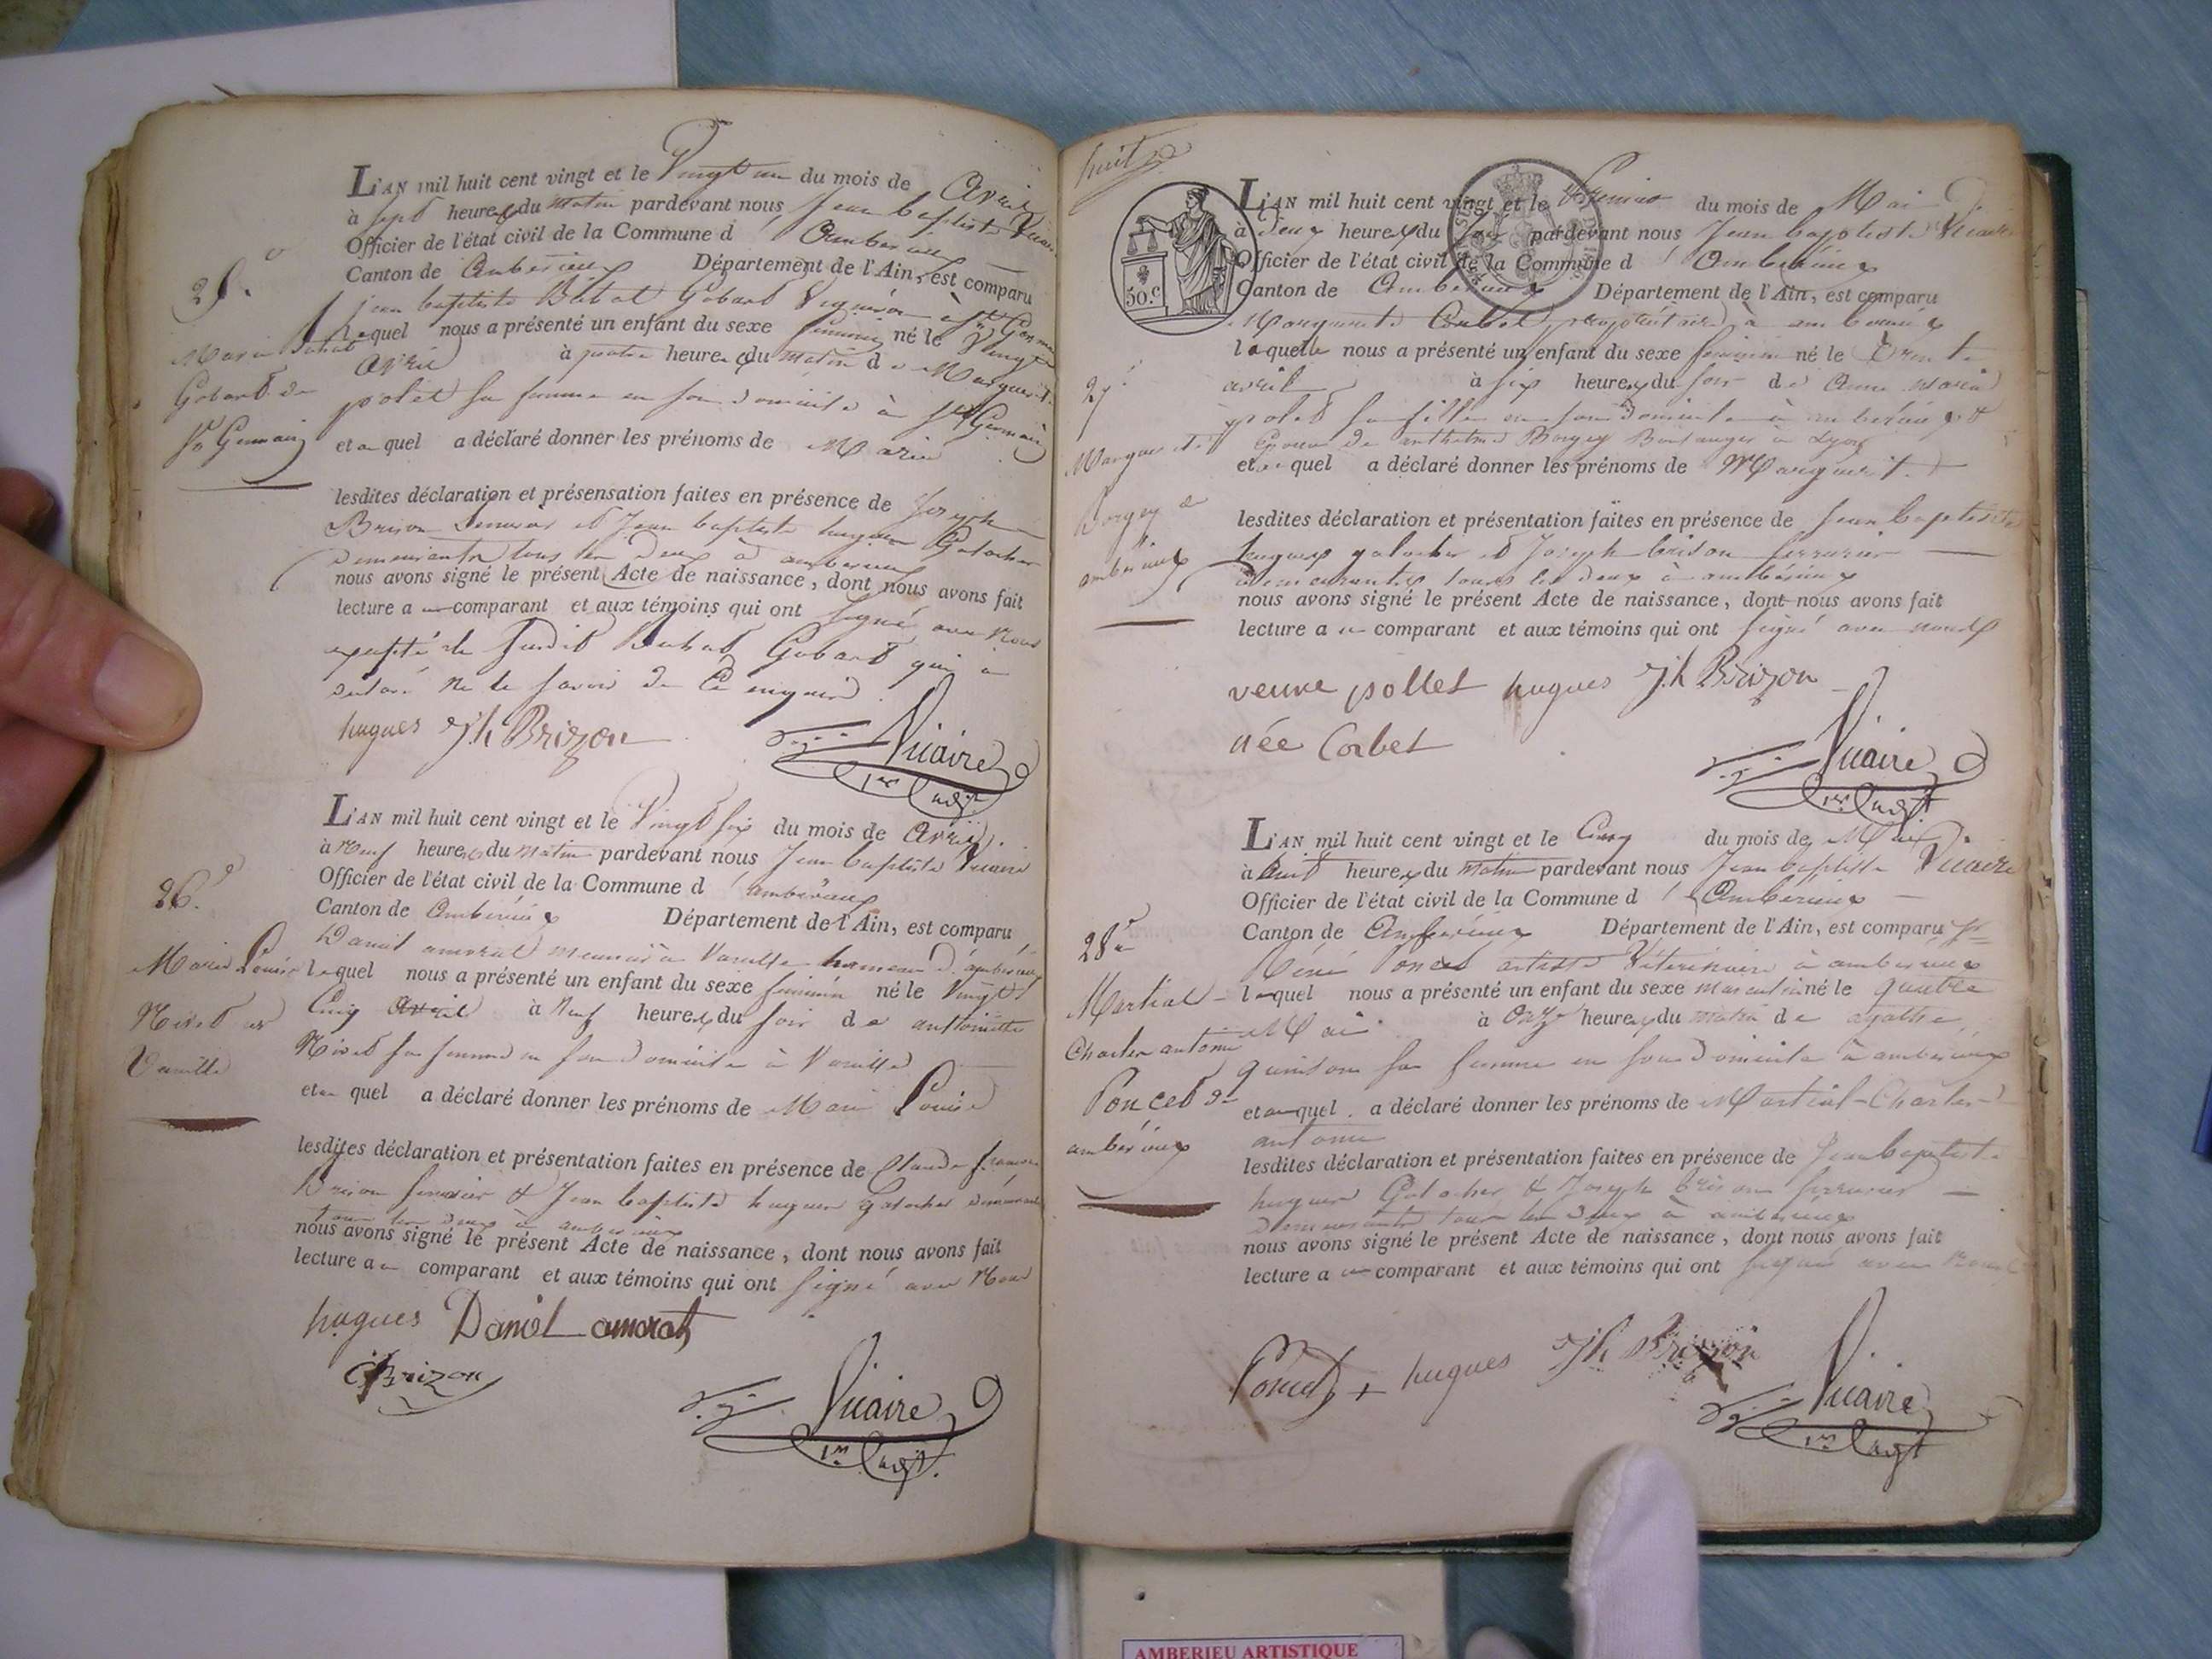 25.e
Marie Buhat
Gobard de
St Germain
L'AN mil huit cent vingt et le Vingt un du mois de Avril
à sept heures du matin pardevant nous Jean baptiste Vicaire
Officier de l'état civil de la Commune d'Amberieux
Canton de Amberieux Département de l'Ain, est comparu
jean baptiste Buhat Gobard Vigneron à St Germain
lequel nous a présenté un enfant du sexe feminin né le Vingt
avril à quatre heures du matin de Marguerite
polet sa femme en son domicile à St Germain
et auquel a déclaré donner les prénoms de Marie
lesdites déclaration et présensation faites en présence de Joseph
Brison et Jean baptiste hugues Galocher
demeurants tous les deux à amberieux
nous avons signé le présent Acte de naissance, dont nous avons fait
lecture au comparant et aux témoins qui ont signé avec Nous
excepté le susdit Buhat Gobard qui a
déclaré ne le savoir de ce enquis
hugues Jh Brizon Vicaire
1er adjt
26.e
Marie Louise
Nivet
Vareille
L'AN mil huit cent vingt et le Vingt six du mois de Avril
à Neuf heures du Matin pardevant nous Jean baptiste Vicaire
Officier de l'état civil de la Commune d'amberieux
Canton de Amberieux Département de l'Ain, est comparu
Daniel amorat meunier à Vareille hameau d'amberieux
lequel nous a présenté un enfant du sexe feminin né le Vingt
Cinq avril à Neuf heures du soir de antoinette
Nivet sa femme en son domicile à Vareille
et au quel a déclaré donner les prénoms de Marie Louise
lesdites déclaration et présentation faites en présence de Claude françois
Brison serrurier & Jean baptiste hugues galocher demeurants
tous les deux à amberieux
nous avons signé le présent Acte de naissance, dont nous avons fait
lecture au comparant et aux témoins qui ont signé avec Nous
hugues Daniel amorat
CBrizon
Vicaire
1er adjt.
huit
50.c
27.e
Marguerite
Borgey
amberieux
L'AN mil huit cent vingt et le Premier du mois de Mai
à deux heures du soir pardevant nous Jean baptiste Vicaire
Officier de l'état civil de la Commune d'Amberieux
Canton de Amberieux Département de l'Ain, est comparu
Marguerite Corbet propriétaire à amberieux
laquelle nous a présenté un enfant du sexe feminin né le Trente
avril à six heures du soir de Anne Marie
polet sa fille en son domicile à amberieux &
Epouse de anthelme Borgey Boulanger à Lyon
et auquel a déclaré donner les prénoms de Marguerite
lesdites déclaration et présentation faites en présence de Jean baptiste
hugues galocher et Joseph brison serrurier
demeurantes tous les deux à amberieux
nous avons signé le présent Acte de naissance, dont nous avons fait
lecture au comparant et aux témoins qui ont signé avec nous
veuve pollet hugues Jh Brizon
née Corbet
Vicaire
1er adjt
28.e
Martial
Charles antoine
Poncet d'
amberieux
L'AN mil huit cent vingt et le Cinq du mois de Mai
à huit heures du matin pardevant nous Jean baptiste Vicaire
Officier de l'état civil de la Commune d'Amberieux
Canton de Amberieux Département de l'Ain, est comparu
Réné Poncet artiste Véterinaire à amberieux
lequel nous a présenté un enfant du sexe masculin né le quatre
Mai à Onze heures du matin de agathe
quinson sa femme en son domicile à amberieux
et auquel a déclaré donner les prénoms de Martial-Charles-
antoine
lesdites déclaration et présentation faites en présence de Jean baptiste
hugues Galocher & Joseph brison serrurier
demeurants tous les deux à amberieux
nous avons signé le présent Acte de naissance, dont nous avons fait
lecture au comparant et aux témoins qui ont signé avec Nous
Poncet hugues Jh Brizon
Vicaire
1er adjt
AMBERIEU ARTISTIQUE